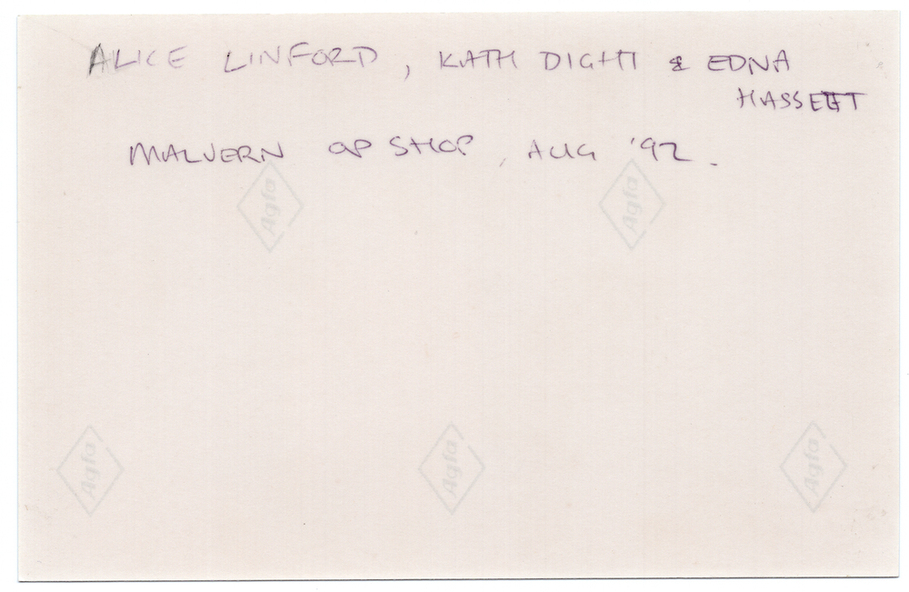 ALICE LINFORD, KATH DIGHT & EDNA
HASSETT
MALVERN OP SHOP, AUG '92.
Agfa
Agfa
Agfa
Agfa
Agfa